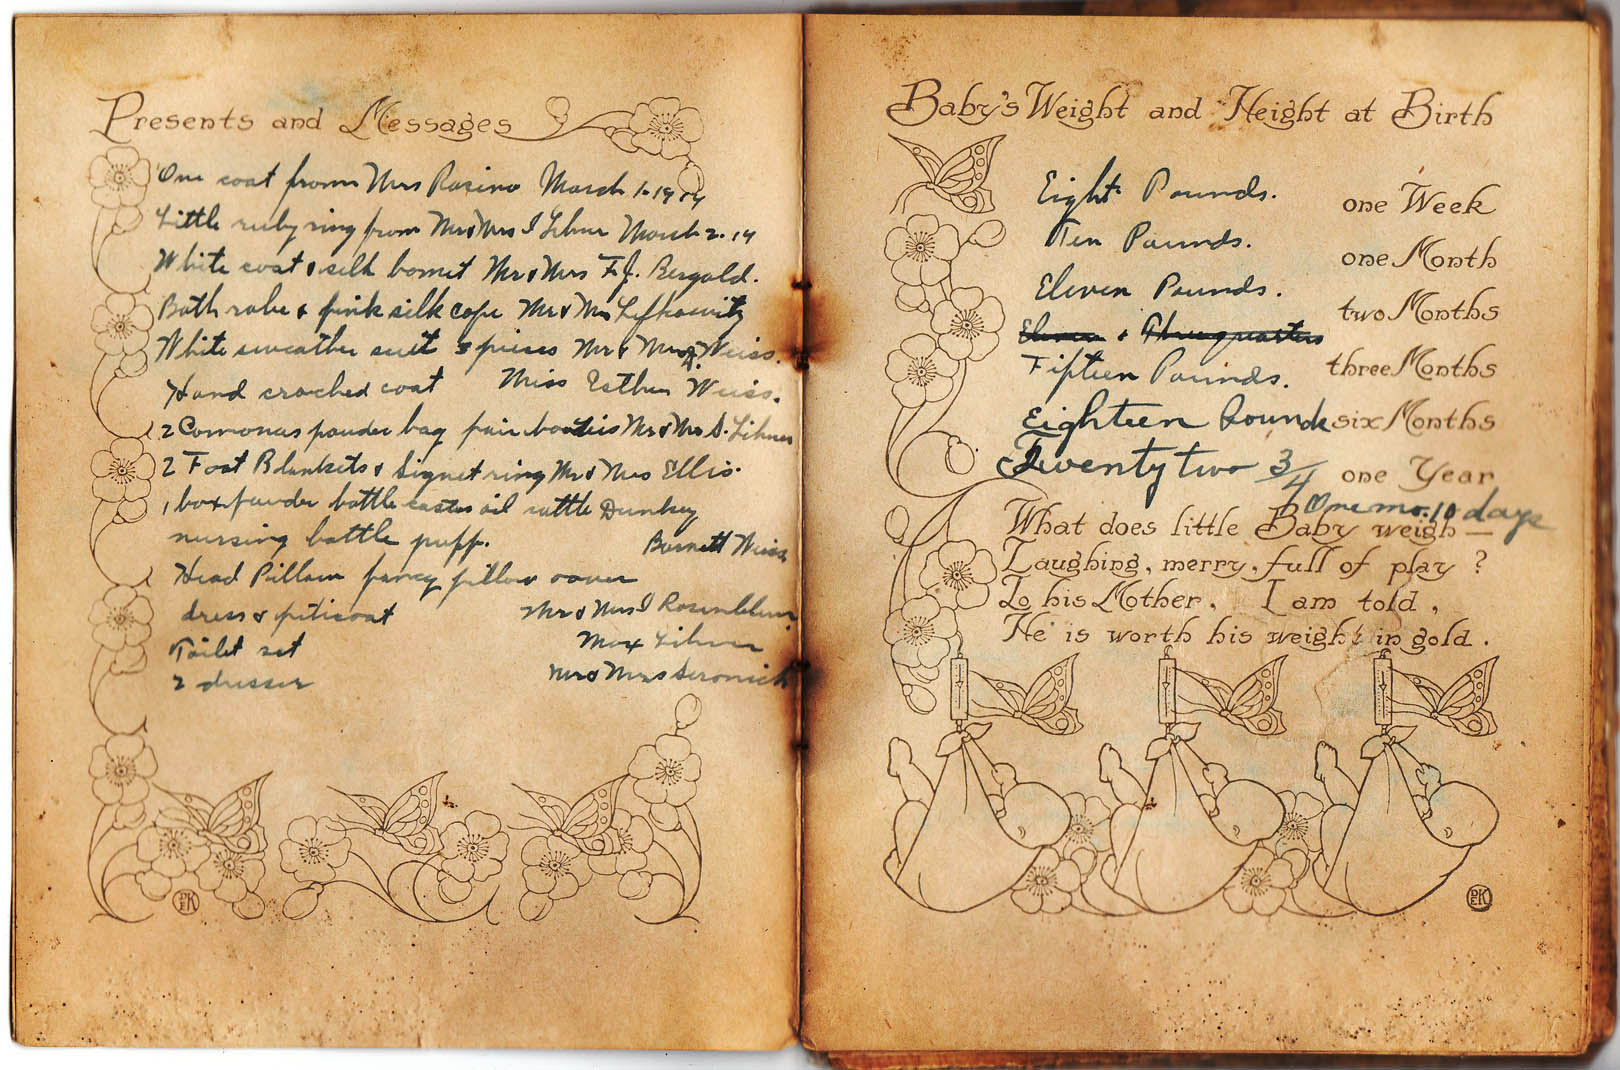 Presents and Messages
One coat from Mrs Rosino March 1-19
Little ruby ring from Mr & Mrs I Lihner March 2-14
White coat & silk bonnet Mr & Mrs F.J. Bergold.
Bath robe & pink silk cape Mr & Mrs Lefkowitz
White sweather suit 3 pieces Mr & Mrs A. Weiss.
Hand croched coat Miss Esther Weiss.
2 powder bag pair booties Mr & Mrs S. Lihner
2 Foot Blankets & Signet ring Mr & Mrs Ellis.
1 box powder bottle castor oil rattle
nursing bottle puff. Barnett Weiss
Head Pillow fancy pillow cover
dress & peticoat Mr & Mrs I Rosenbleum
Toilet set Max Lihner
2 dresser Mr & Mrs
PK
Baby's Weight and Height at Birth
Eight Pounds. one Week
Ten Pounds. one Month
Eleven Pounds. two Months
Eleven & Threequarters
Fifteen Pounds. three Months
Eighteen Pounds six Months
Twenty two 3/4 one Year
One mo. 10 days
What does little Baby weigh —
Laughing, merry, full of play ?
To his Mother, I am told,
He is worth his weight in gold.
PK